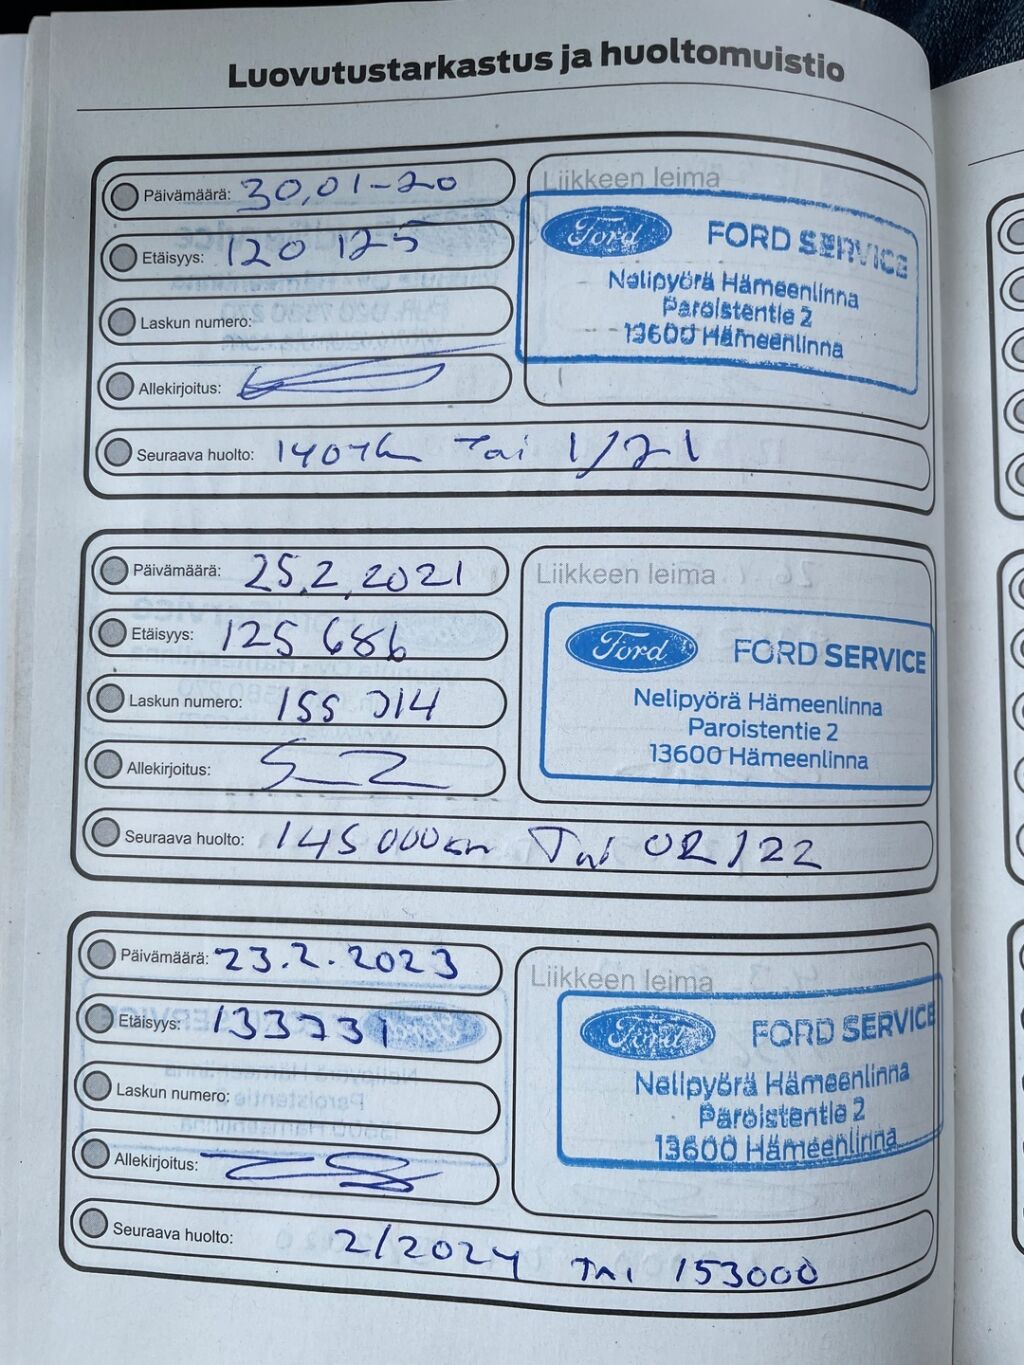 Luovutustarkastus ja huoltomuistio
Päivämäärä: 30,01-20
Etäisyys: 120 125
Laskun numero:
Allekirjoitus:
Liikkeen leima
Ford FORD SERVICE
Nelipyörä Hämeenlinna
Paroistentie 2
13600 Hämeenlinna
Seuraava huolto: 140tk Tai 1/21
Päivämäärä: 25.2.2021
Etäisyys: 125 686
Laskun numero: 155 014
Allekirjoitus:
Liikkeen leima
Ford FORD SERVICE
Nelipyörä Hämeenlinna
Paroistentie 2
13600 Hämeenlinna
Seuraava huolto: 145 000km Tai 02/22
Päivämäärä: 23.2.2023
Etäisyys: 133731
Laskun numero:
Allekirjoitus:
Liikkeen leima
Ford FORD SERVICE
Nelipyörä Hämeenlinna
Paroistentie 2
13600 Hämeenlinna
Seuraava huolto: 2/2024 Tai 153000